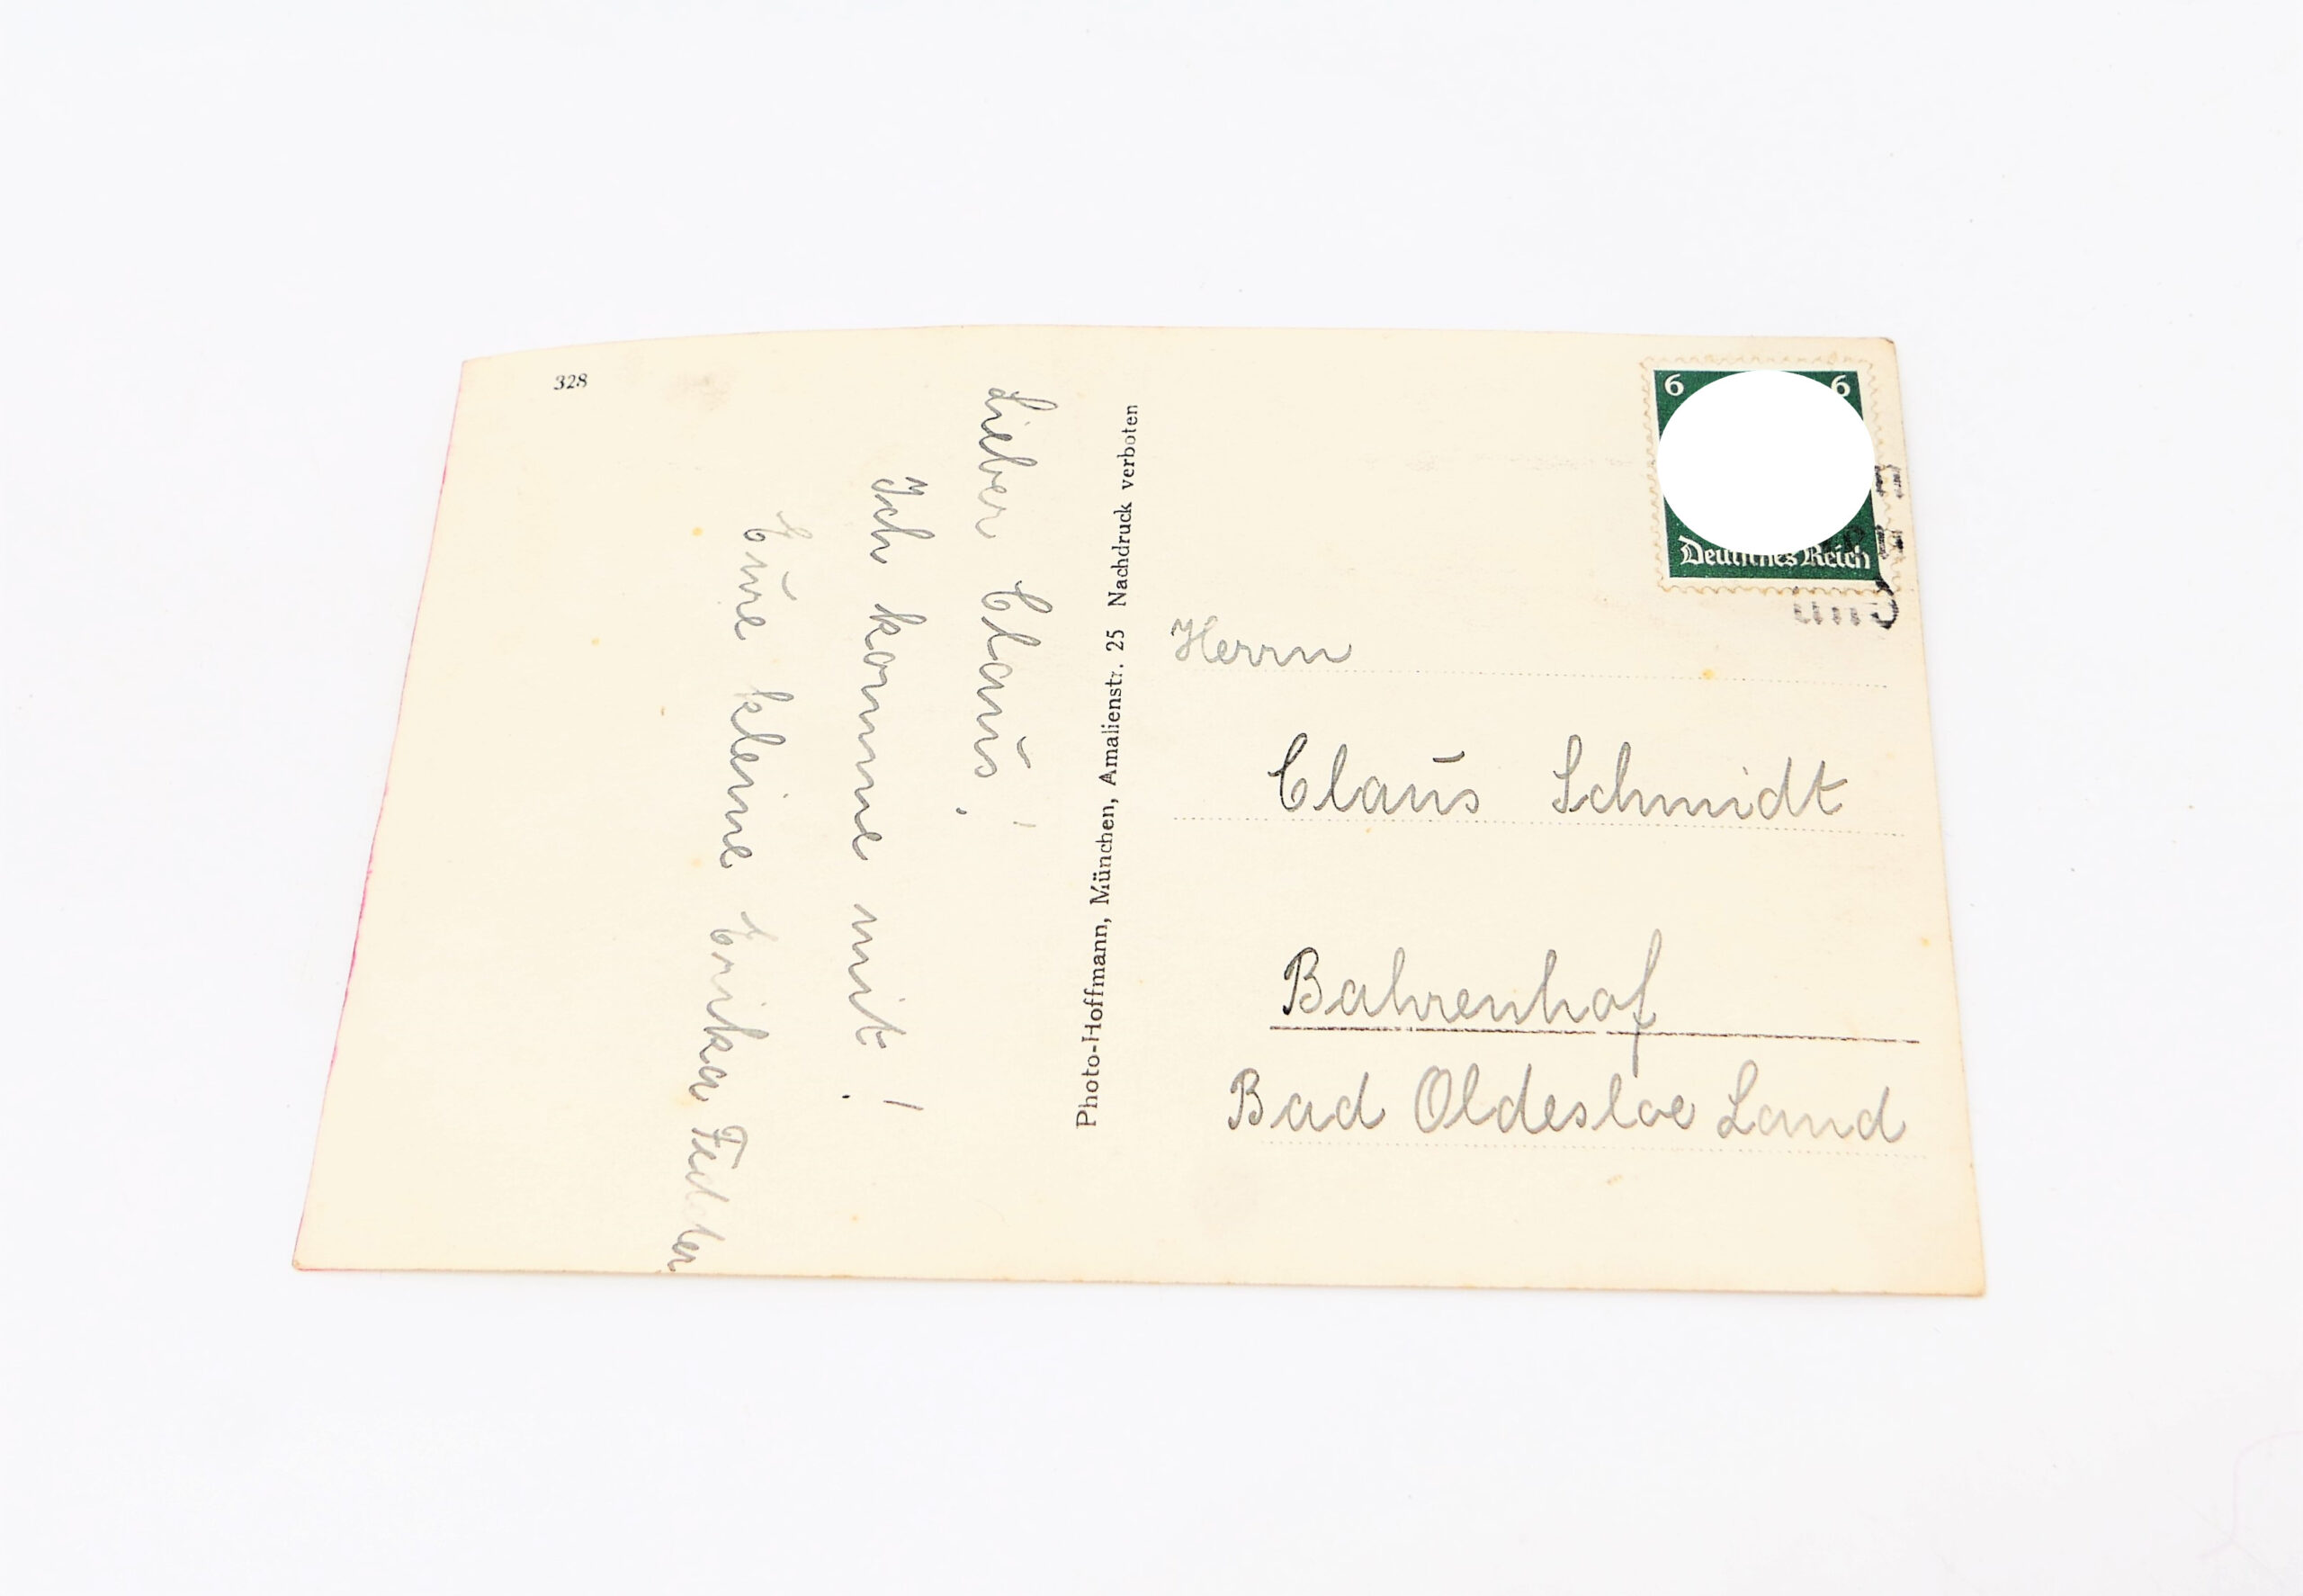 328
Lieber Claus!
Ich komme mit!
Eure kleine Erika Fedder
Photo-Hoffmann, München, Amalienstr. 25 Nachdruck verboten
6 6
Deutsches Reich
Herrn
Claus Schmidt
Bahrenhof
Bad Oldesloe Land